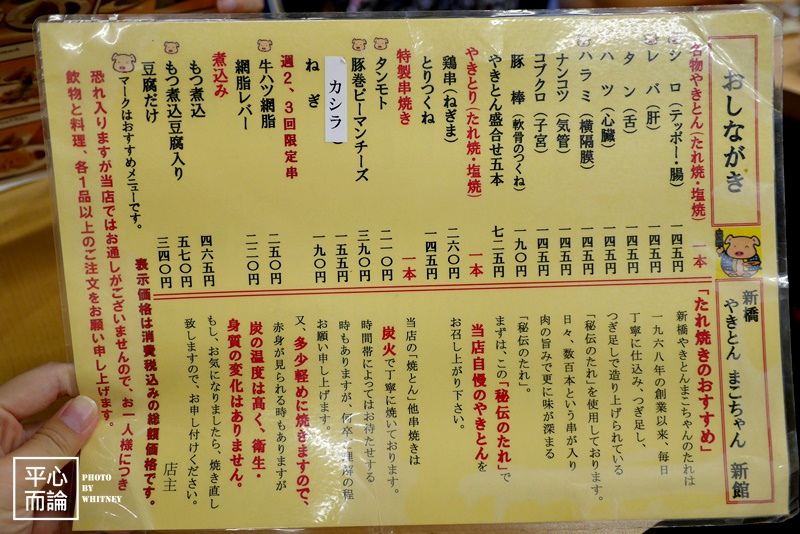 おしながき
新橋
やきとん まこちゃん 新館
名物やきとん(たれ焼・塩焼) 一本
シロ(テッポー・腸) 一四五円
レバ(肝) 一四五円
タン(舌) 一四五円
ハツ(心臓) 一四五円
ハラミ(横隔膜) 一四五円
ナンコツ(気管) 一四五円
コブクロ(子宮) 一四五円
豚棒(軟骨のつくね) 一九〇円
やきとん盛合せ五本 七二五円
やきとり(たれ焼・塩焼) 一本
鶏串(ねぎま) 二六〇円
とりつくね 一四五円
特製串焼き 一本
タンモト 二一〇円
豚巻ピーマンチーズ 三九〇円
カシラ 一五五円
ねぎ 一九〇円
週2、3回限定串
牛ハツ網脂 二五〇円
網脂レバー 二二〇円
煮込み
もつ煮込 四六五円
もつ煮込豆腐入り 五七〇円
豆腐だけ 三四〇円
マークはおすすめメニューです。
恐れ入りますが当店ではお通しがございませんので、お一人様につき
飲物と料理、各1品以上のご注文をお願い申し上げます。
表示価格は消費税込みの総額価格です。
「たれ焼きのおすすめ」
新橋やきとんまこちゃんのたれは
一九六八年の創業以来、毎日
丁寧に仕込み、つぎ足し、
つぎ足しで造り上げられている
「秘伝のたれ」を使用しております。
日々、数百本という串が入り
肉の旨みで更に味が深まる
「秘伝のたれ」。
まずは、この「秘伝のたれ」で
当店自慢のやきとんを
お召し上がり下さい。
当店の「焼とん」他串焼きは
炭火で丁寧に焼いております。
時間帯によってはお待たせする
時もありますが、何卒ご理解の程
お願い申し上げます。
又、多少軽めに焼きますので、
赤身が見られる時もありますが
炭の温度は高く、衛生・
身質の変化はありません。
もし、お気になりましたら、焼き直し
致しますので、お申し付けください。
店主
平心
而論
PHOTO
BY
WHITNEY